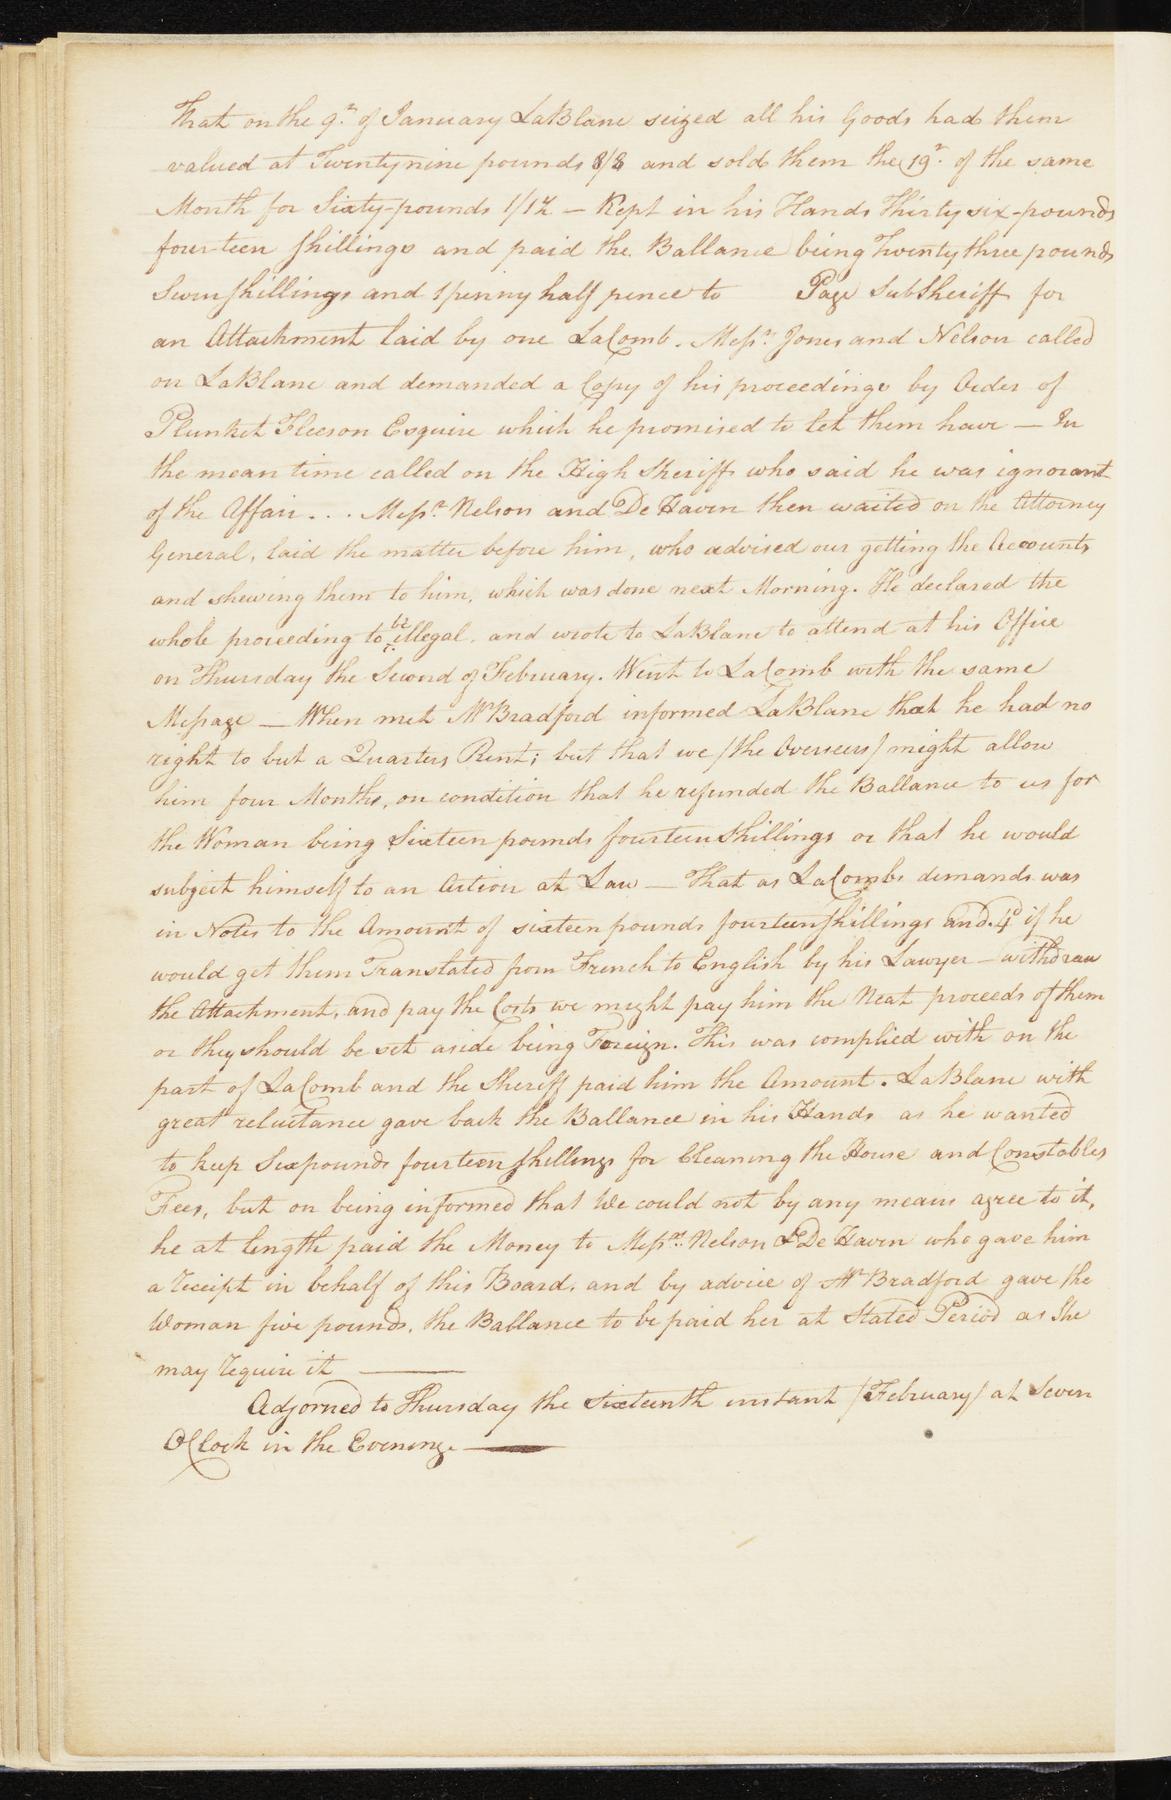 That on the 9.th of January LaBlanc seized all his Goods had them
valued at Twentynine pounds 8/8 and sold them the 19th. of the same
Month for Sixty-pounds 1/1½ — Kept in his Hands Thirty six-pounds
fourteen shillings and paid the Ballance being Twenty three pounds
Seven shillings and 1 penny half pence to Page SubSheriff for
an Attachment laid by one LaComb. Messrs. Jones and Nelson called
on LaBlanc and demanded a Copy of his proceedings by Order of
Plunket Fleeson Esquire which he promised to let them have — In
the mean time called on the High Sheriff who said he was ignorant
of the Affair... Messrs. Nelson and De Haven then waited on the Attorney
General, laid the matter before him, who advised our getting the Accounts
and shewing them to him, which was done next Morning. He declared the
whole proceeding to be illegal. and wrote to LaBlanc to attend at his Office
on Thursday the Second of February. Went to LaComb with the same
Message — When met Mr Bradford informed LaBlanc that he had no
right to but a Quarters Rent; but that we /the Overseers/ might allow
him four Months, on condition that he refunded the Ballance to us for
the Woman being Sixteen pounds fourteen Shillings or that he would
subject himself to an Action at Law — That as LaCombs demands was
in Notes to the Amount of sixteen pounds fourteen shillings and 4d if he
would get them Translated from French to English by his Lawyer — withdraw
the Attachment, and pay the Costs we might pay him the Neat proceeds of them
or they should be set aside being Foreign. This was complied with on the
part of LaComb and the Sheriff paid him the Amount. LaBlanc with
great reluctance gave back the Ballance in his Hands as he wanted
to keep Six pounds fourteen shillings for Cleaning the House and Constables
Fees, but on being informed that We could not by any means agree to it,
he at length paid the Money to Messrs. Nelson & De Haven who gave him
a receipt in behalf of this Board. and by advice of Mr Bradford gave the
Woman five pounds, the Ballance to be paid her at Stated Period as She
may require it
Adjorned to Thursday the Sixteenth instant /February/ at Seven
OClock in the Evening.